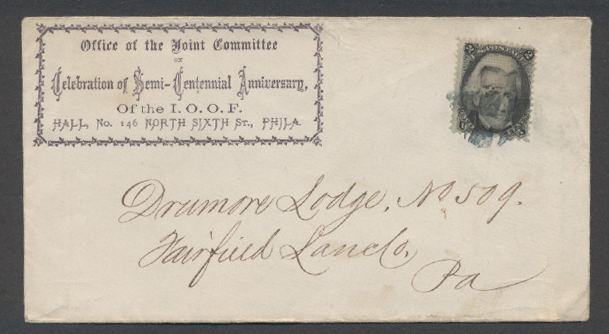 Office of the Joint Committee
ON
Celebration of Semi-Centennial Anniversary,
Of the I. O. O. F.
HALL, No. 146 NORTH SIXTH ST., PHILA.
Drumore Lodge, No 509.
Fairfield Lanc Co.
Pa